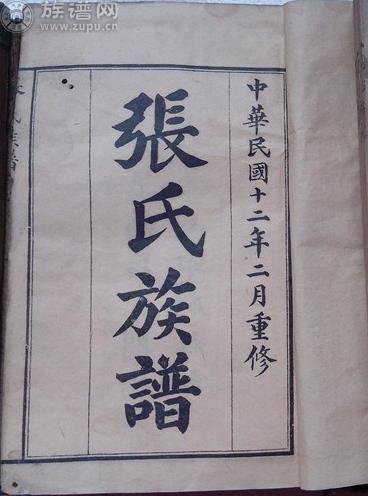 族谱网
www.zupu.cn
中華民國十二年二月重修
張氏族譜